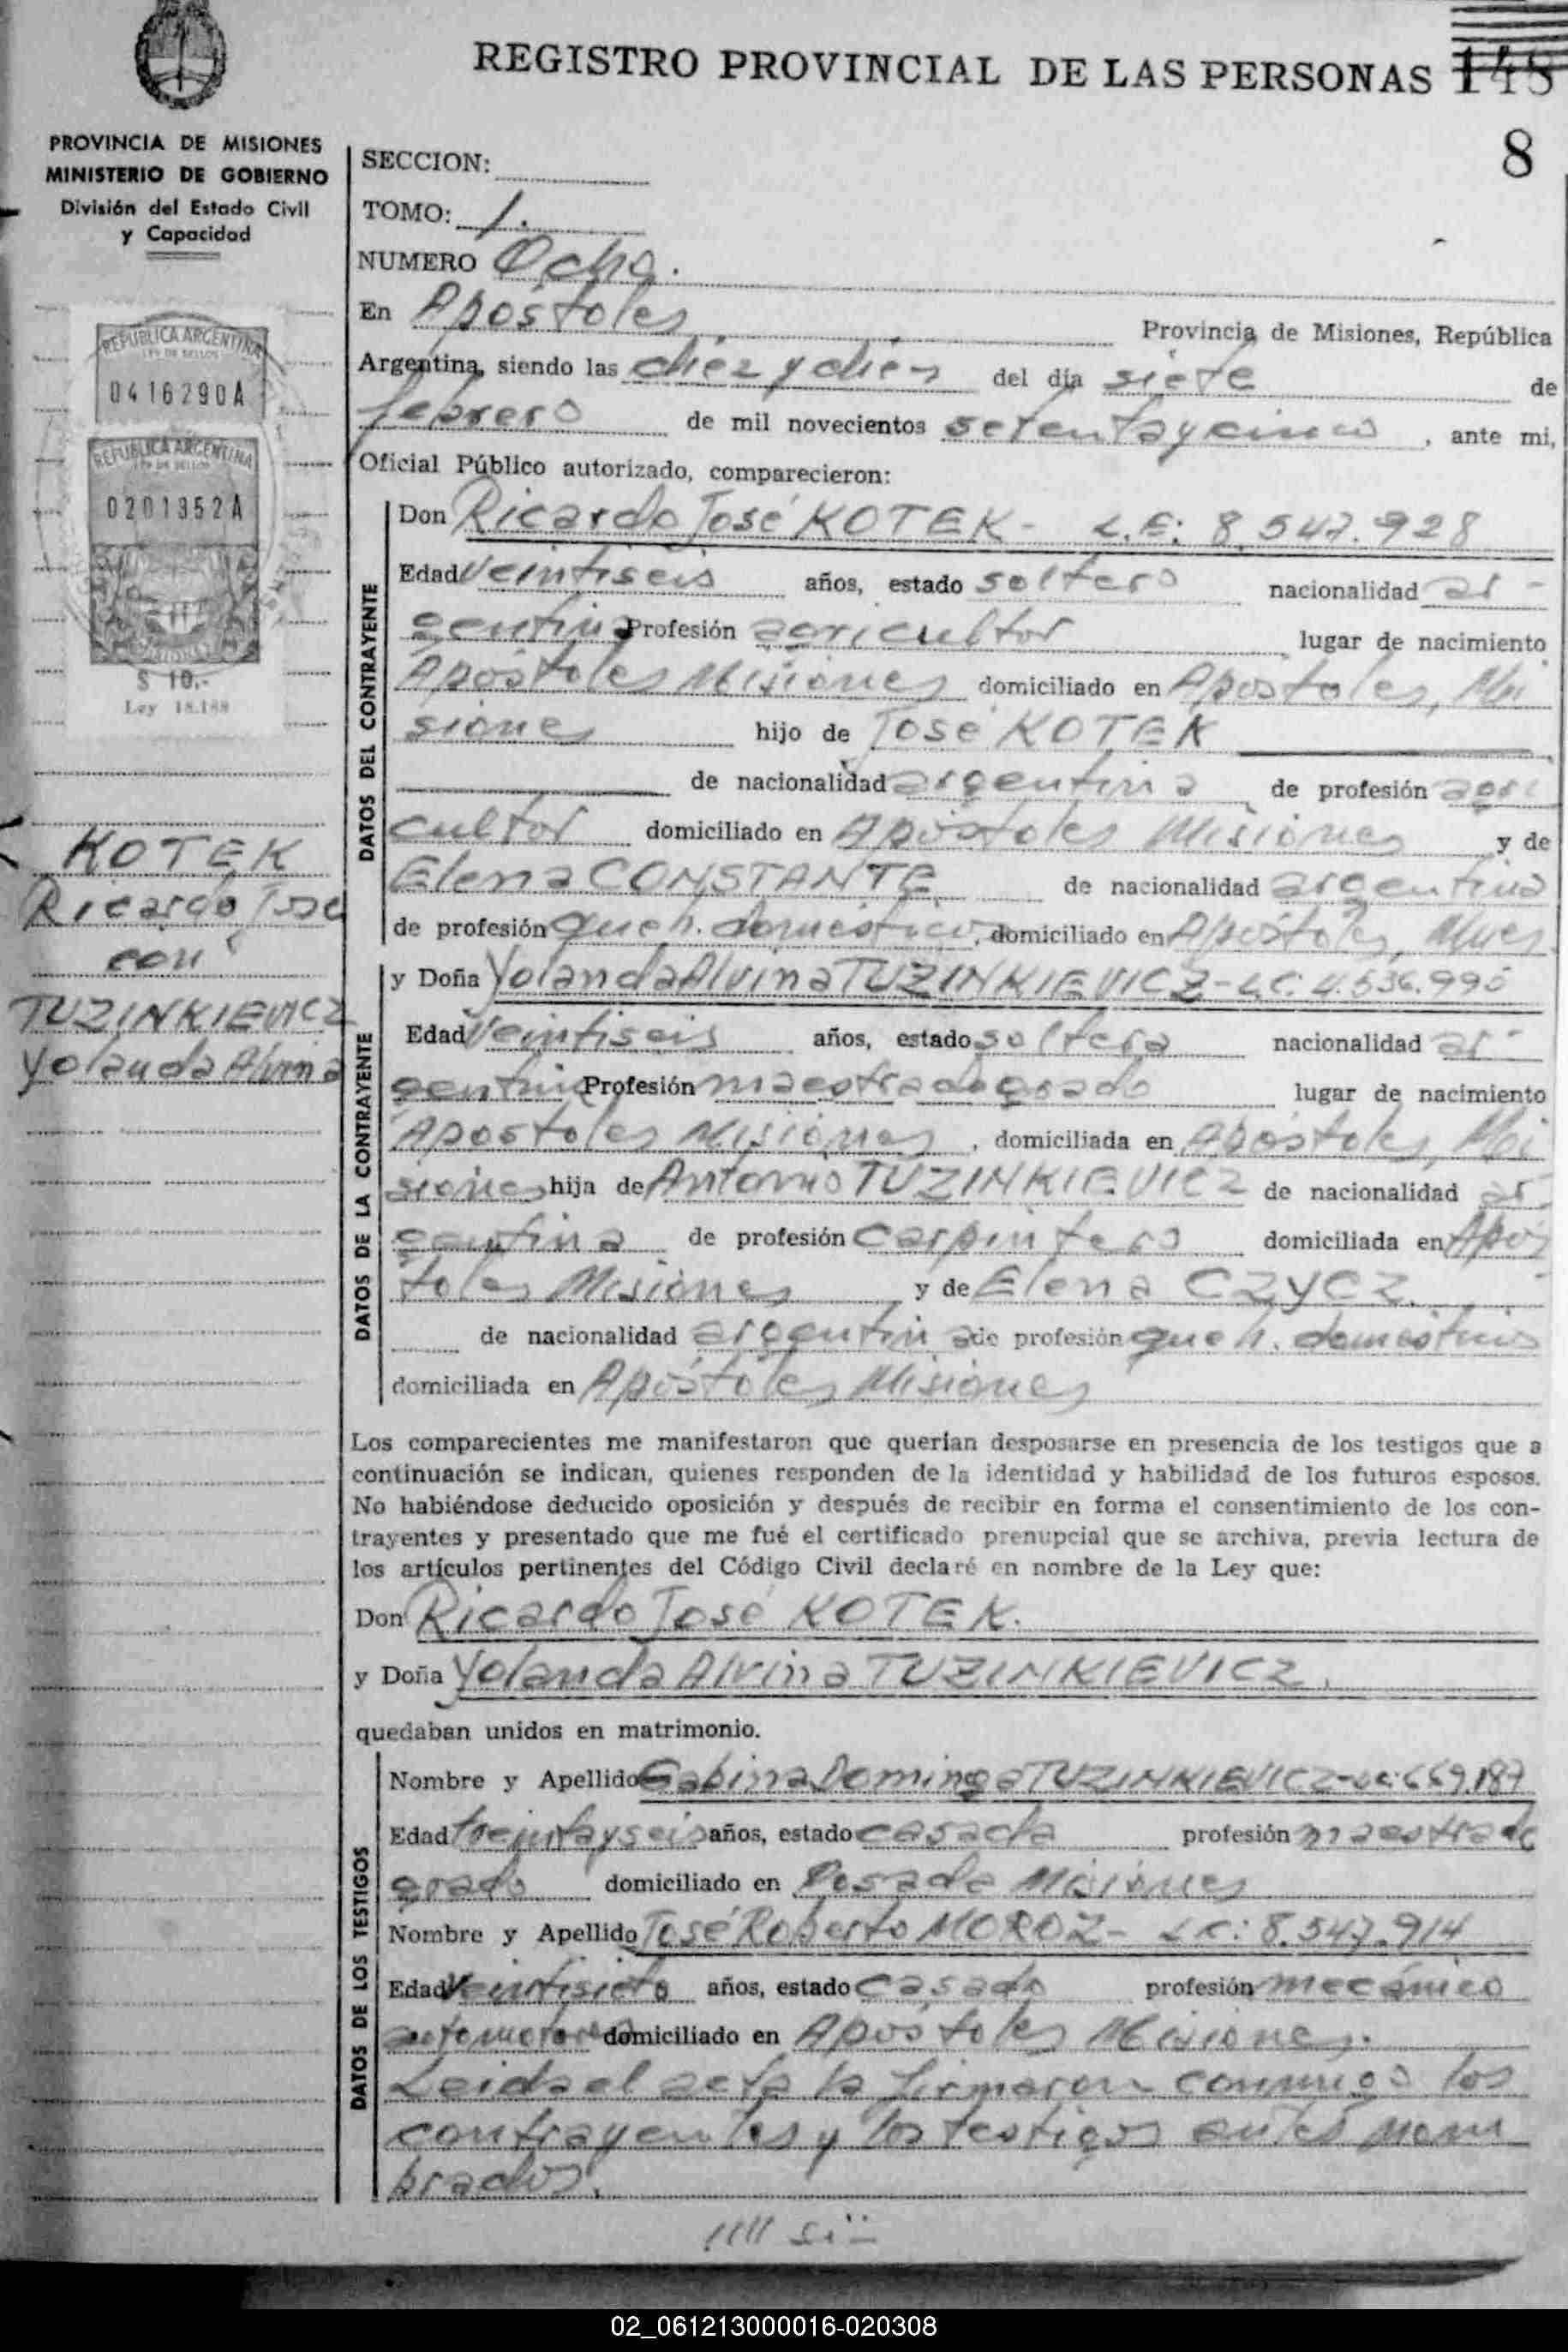 REGISTRO PROVINCIAL DE LAS PERSONAS 145
8
PROVINCIA DE MISIONES
MINISTERIO DE GOBIERNO
División del Estado Civil
y Capacidad
REPUBLICA ARGENTINA
0416290A
REPUBLICA ARGENTINA
0201352A
$ 10.-
Ley 18.188
KOTEK
Ricardo José
con
TUZINKIEVICZ
Yolanda Alvina
SECCION:
TOMO: 1.
NUMERO Ocho.
En Apóstoles Provincia de Misiones, República
Argentina, siendo las diez y diez del día siete de
febrero de mil novecientos setenta y cinco, ante mi,
Oficial Público autorizado, comparecieron:
DATOS DEL CONTRAYENTE
Don Ricardo José KOTEK - L.E: 8.547.928
Edad veintiseis años, estado soltero nacionalidad ar-
gentina Profesión agricultor lugar de nacimiento
Apóstoles Misiones domiciliado en Apóstoles, Mi
siones hijo de José KOTEK
de nacionalidad argentina de profesión agri
cultor domiciliado en Apóstoles Misiones y de
Elena CONSTANTE de nacionalidad argentina
de profesión queh. domésticos, domiciliado en Apóstoles, Mnes
DATOS DE LA CONTRAYENTE
y Doña Yolanda Alvina TUZINKIEVICZ - L.C. 4.536.995
Edad veintiseis años, estado soltera nacionalidad ar-
gentina Profesión maestra de grado lugar de nacimiento
Apostoles Misiones, domiciliada en Apóstoles, Mi
siones hija de Antonio TUZINKIEVICZ de nacionalidad ar
gentina de profesión carpintero domiciliada en Após
toles Misiones y de Elena CZYCZ.
de nacionalidad argentina de profesión queh. domésticos
domiciliada en Apóstoles Misiones
Los comparecientes me manifestaron que querían desposarse en presencia de los testigos que a
continuación se indican, quienes responden de la identidad y habilidad de los futuros esposos.
No habiéndose deducido oposición y después de recibir en forma el consentimiento de los con-
trayentes y presentado que me fué el certificado prenupcial que se archiva, previa lectura de
los artículos pertinentes del Código Civil declaré en nombre de la Ley que:
Don Ricardo José KOTEK.
y Doña Yolanda Alvina TUZINKIEVICZ.
quedaban unidos en matrimonio.
DATOS DE LOS TESTIGOS
Nombre y Apellido Gabina Dominga TUZINKIEVICZ - LC: 669.187
Edad treinta y seis años, estado casada profesión maestra de
grado domiciliado en Posadas Misiones
Nombre y Apellido José Roberto MOROZ - L.E: 8.547.914
Edad veintisiete años, estado casado profesión mecánico
automotores domiciliado en Apóstoles Misiones.
Leida el acta la firmaron conmigo los
contrayentes y los testigos antes nom
brados.
02_061213000016-020308